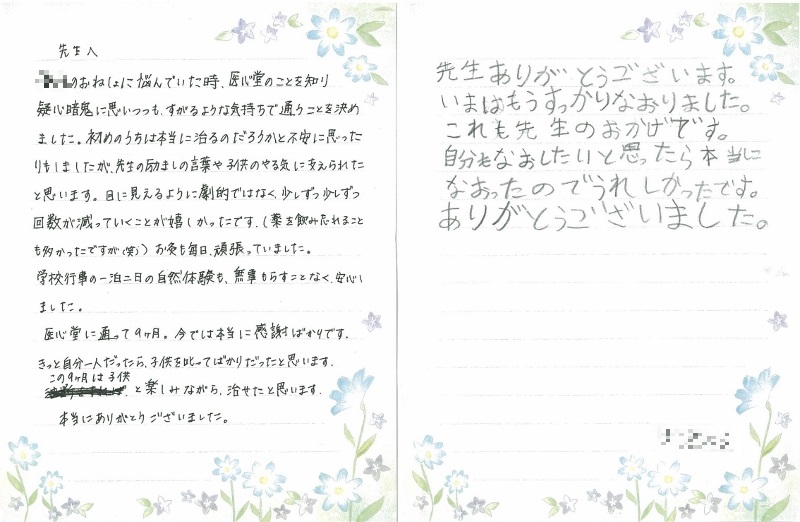 先生へ
のおねしょに悩んでいた時、医心堂のことを知り
疑心暗鬼に思いつつも、すがるような気持ちで通うことを決め
ました。初めのうちは本当に治るのだろうかと不安に思った
りもしましたが、先生の励ましの言葉や子供のやる気に支えられた
と思います。目に見えるように劇的ではなく、少しずつ少しずつ
回数が減っていくことが嬉しかったです。(薬を飲み忘れること
も多かったですが(笑))お灸も毎日、頑張っていました。
学校行事の一泊二日の自然体験も、無事もらすことなく、安心し
ました。
医心堂に通って9ヶ月。今では本当に感謝ばかりです。
きっと自分一人だったら、子供を叱ってばかりだったと思います。
この9ヶ月は子供
と楽しみながら、治せたと思います。
本当にありがとうございました。
先生ありがとうございます。
いまはもうすっかりなおりました。
これも先生のおかげです。
自分もなおしたいと思ったら本当に
なおったのでうれしかったです。
ありがとうございました。